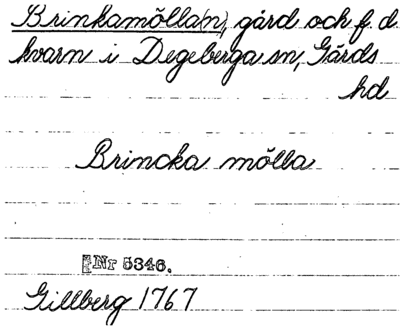 Brinkamölla(n), gård och f d
kvarn i Degeberga sn, Gärds
hd
Brincka mölla
Nr 5346.
Gillberg 1767